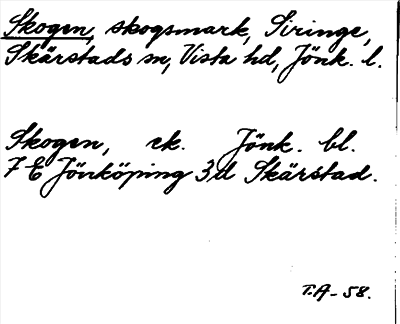 Skogen, skogsmark, Siringe,
Skärstads sn, Vista hd, Jönk. l.
Skogen, ek. Jönk. bl.
7 E Jönköping 3d Skärstad.
T.A-58.